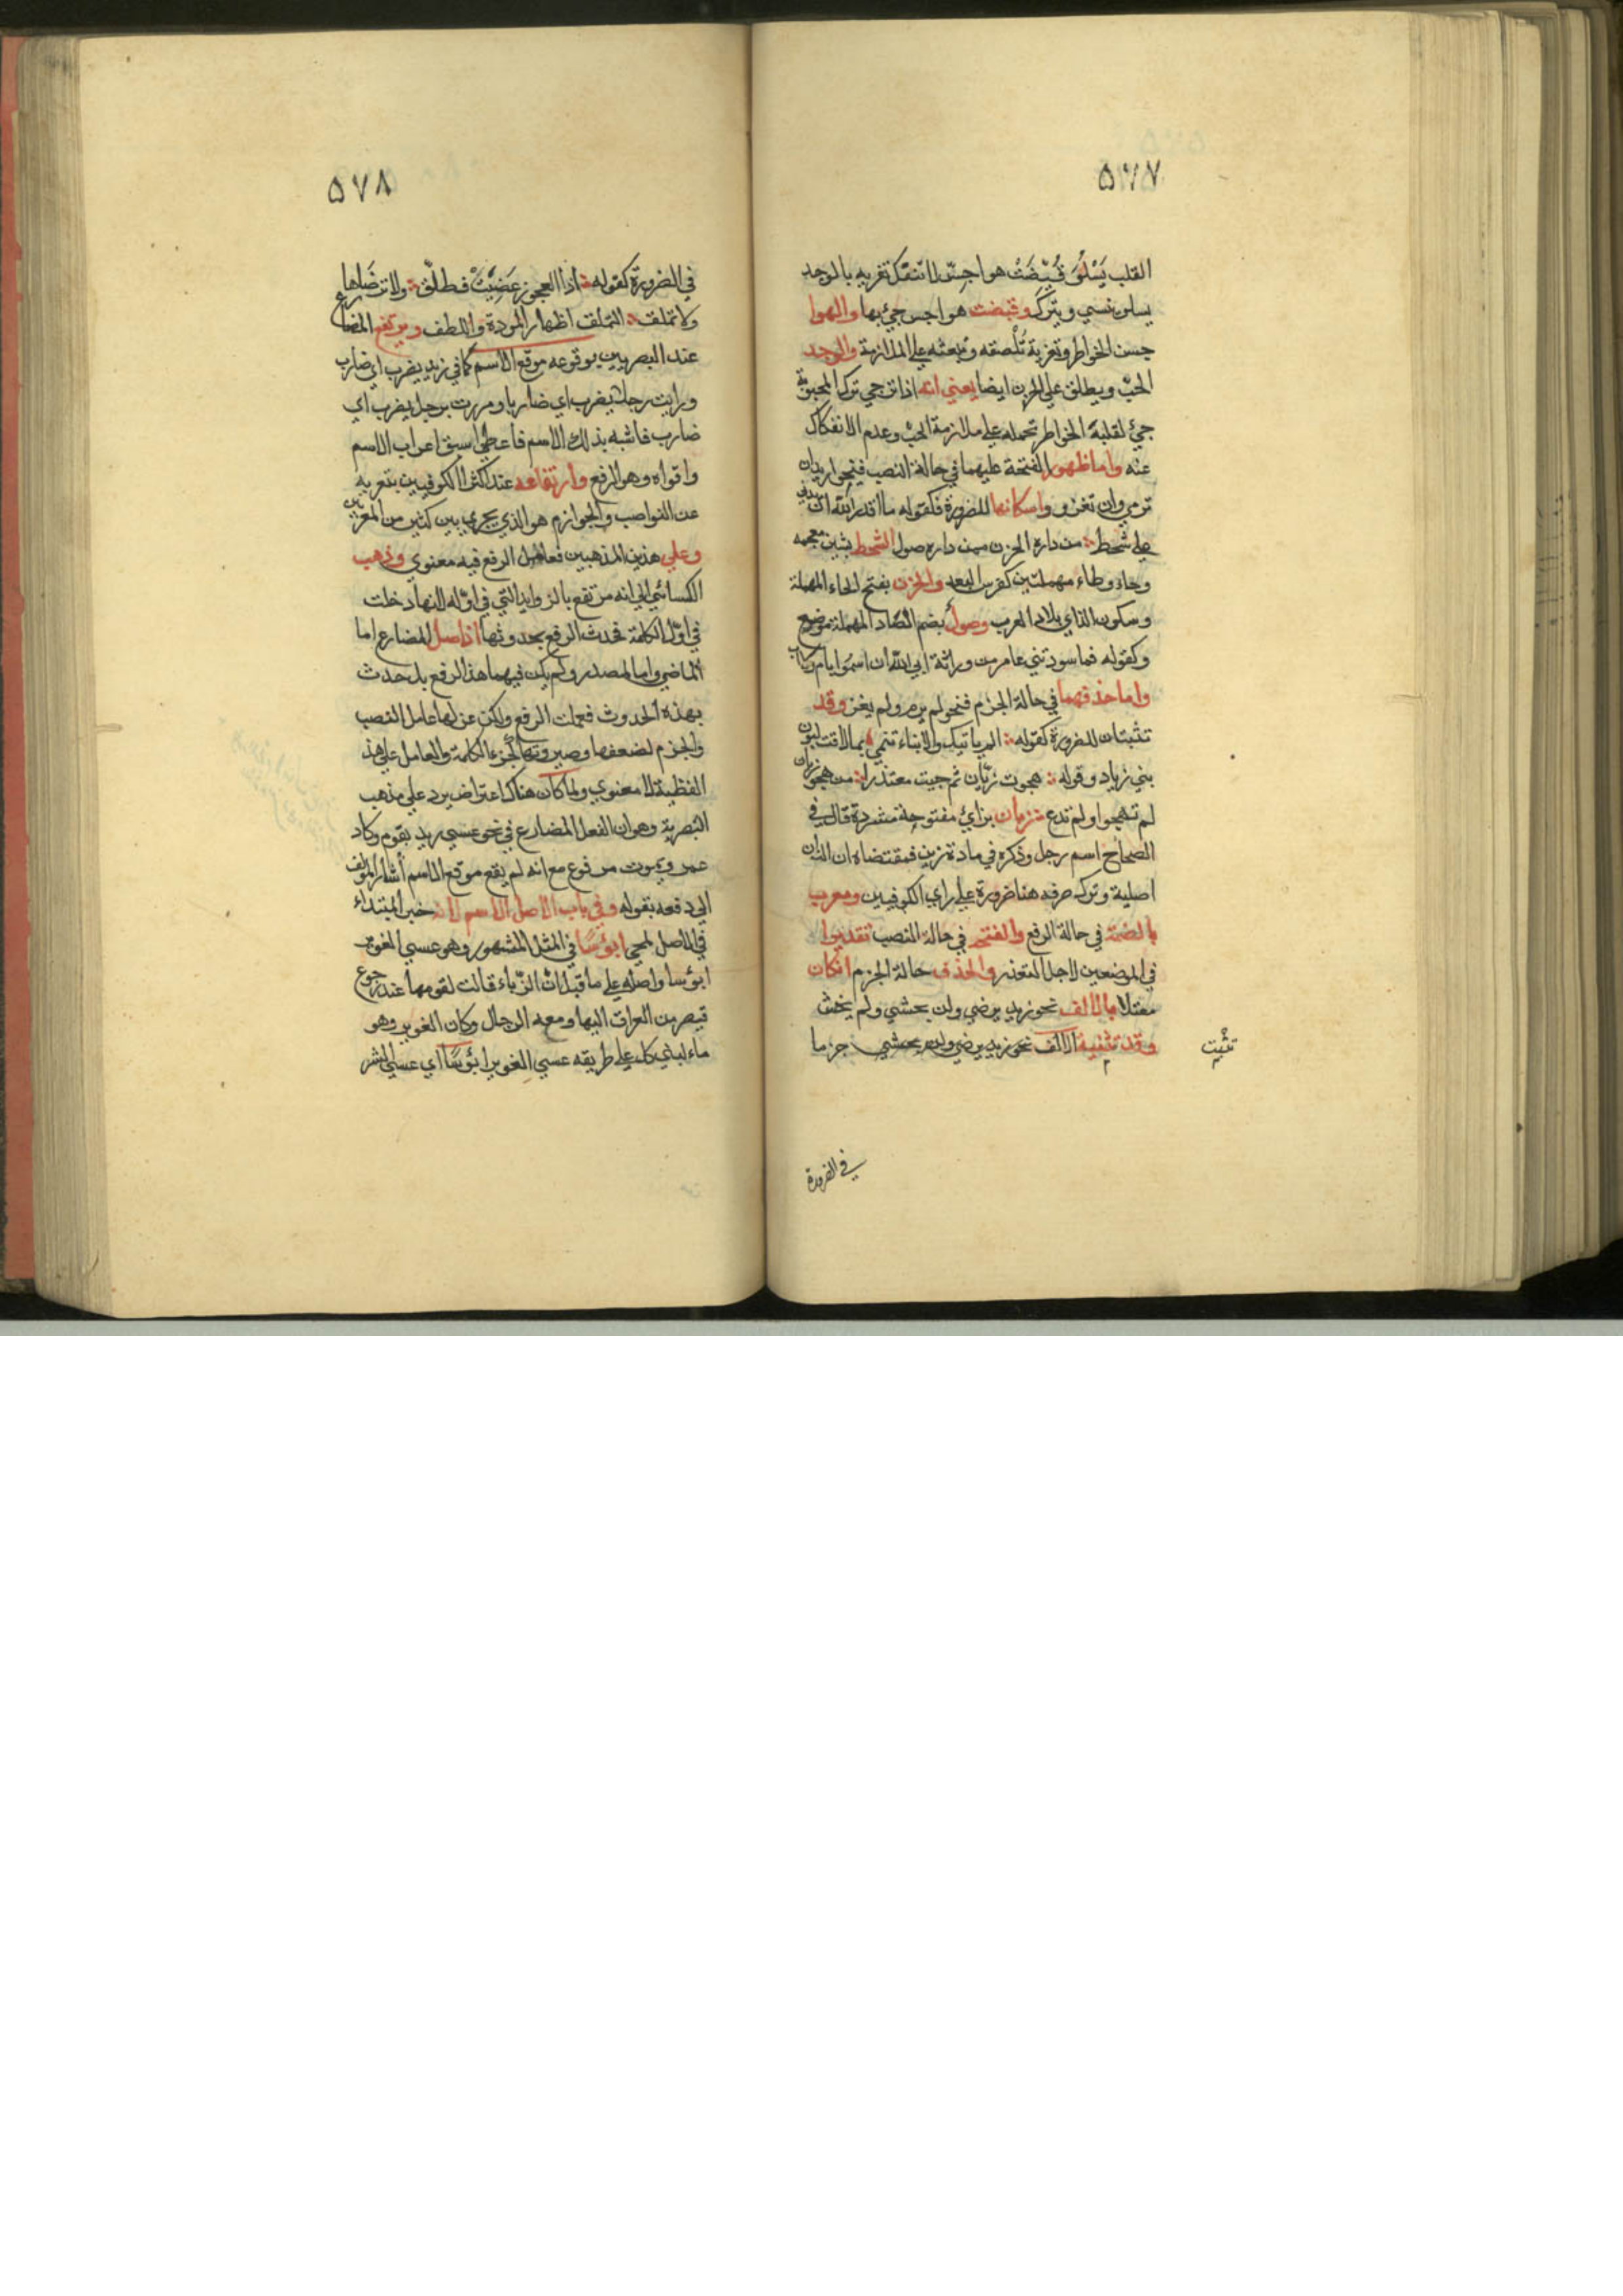 ٥٧٧
القلب يَسْلُوَ قُيِّضَتْ هواجِسُ لا تنفكّ تغريه بالوجد
يسلو ينسي ويترك وقيضت هواجس جئ بها والهوا
جسن الخواطر وتغرية تُلْصقه وتبعثه علي الملازمة والوجد
الحبّ ويطلق علي الحزن ايضا يعني انه اذا ترجي ترك المحبوبة
جئ لقلبه الخواطر تحمله علي ملازمة الحبّ وعدم الانفكاك
عنه واما ظهور الفتحة عليهما في حالة النصب فنحو اريد ان
ترمي وان تغزو واسكانها للضرورة فكقوله ما اقدر الله ان يدني
علي شحط من داره الحزن ممن داره صول الشحط بشين معجمة
وحاء وطاء مهملتين كفرس البعد والحزن بفتح الحاء المهملة
وسكون الذاي بلاد العرب وصول بضم الصّاد المهملة موضع
وكقوله فما سودتني عامر من وراثة ابي الله ان اسمُوا بام ولا اب
واما حذفهما في حالة الجزم فنحو لم يرم ولم يغز وقد
تثبتان للضرورة كقوله الم ياتيك والابناء تنمي بما لاقت لبون
بني زياد وقوله هجوت زبّان ثم جيت معتذرا من هجو زبان
لم تهجوا ولم تدع زبان بزائ مفتوحة مشددة قال في
الصحاح اسم رجل وذكره في مادة زبن فمقتضاه ان النون
اصلية وترك صرفه هنا ضرورة علي راي الكوفيين ومعرب
بالضمة في حالة الرفع والفتحة في حالة النصب تقديرا
في الموضعين لاجل التعذر والحذف حالة الجزم ان كان
معتلا بالالف نحو زيد يرضي ولن يخشي ولم يخش
وقد تثبت الالف نحو زيد يرضي ولن يخشي جزما
تثبت
في الضرورة
٥٧٨
في الضرورة كقوله اذا العجوز غضبت فطلّق ولا ترضّاها
ولا تملق التملق اظهار المودة واللطف ويرتفع المضارع
عند البصريين بوقوعه موقع الاسم كما في زيد يضرب اي ضارب
ورايت رجلا يضرب اي ضاربا ومررت برجل يضرب اي
ضارب فاشبه بذلك الاسم فاعطي اسبق اعراب الاسم
واقواه وهو الرفع وارتفاعه عند اكثر الكوفيين بتعريه
عن النواصب والجوازم هو الذي يجري بين كثير من المعربين
وعلي هذين المذهبين فعامل الرفع فيه معنوي وذهب
الكسائي الي انه مرتفع بالزوايد التي في اوّله لانها دخلت
في اوّل الكلمة فحدث الرفع بحدوثها اذ اصل المضارع اما
الماضي واما المصدر ولم يكن فيهما هذا الرفع بل حدث
بهذه الحدوث فعملت الرفع ولكن عزلها عامل النصب
والجزم لضعفها وصيرورتها كجزء الكلمة والعامل علي هذ
الفظي لا معنوي ولما كان هناك اعتراض يرد علي مذهب
البصرية وهو ان الفعل المضارع في نحو عسي زيد يقوم وكاد
عمرو يموت مرفوع مع انه لم يقع موقع الاسم أشار المؤلف
الي دفعه بقوله وفي باب الاصل الاسم لانه خبر المبتداء
في الاصل لمجي ابؤسًا في المثل المشهور وهو عسي الغوير
ابؤسا واصله علي ما قيل ان الزّباء قالت لقومها عند رجوع
قيصر من العراق اليها ومعه الرجال وكان الغوير وهو
ماء لبني كلب علي طريقه عسي الغوير ابؤسًا اي عسي الشر